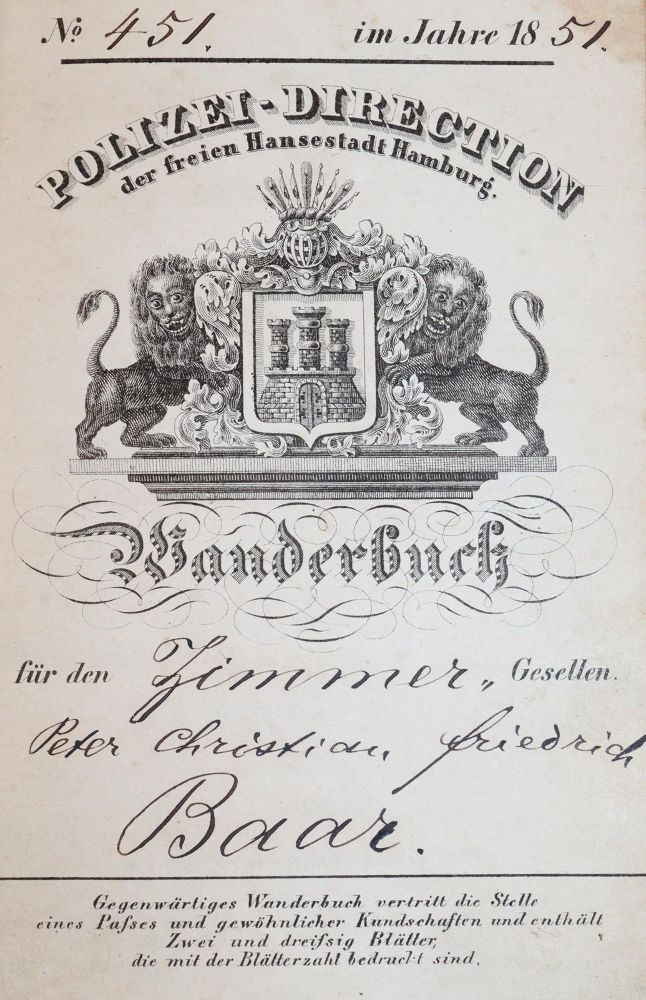 No 451. im Jahre 1851.
POLIZEI-DIRECTION
der freien Hansestadt Hamburg.
Wanderbuch
für den Zimmer„ Gesellen.
Peter Christian Friedrich
Baar.
Gegenwärtiges Wanderbuch vertritt die Stelle
eines Paſses und gewöhnlicher Kundschaften und enthält
Zwei und dreiſsig Blätter,
die mit der Blätterzahl bedruckt sind.